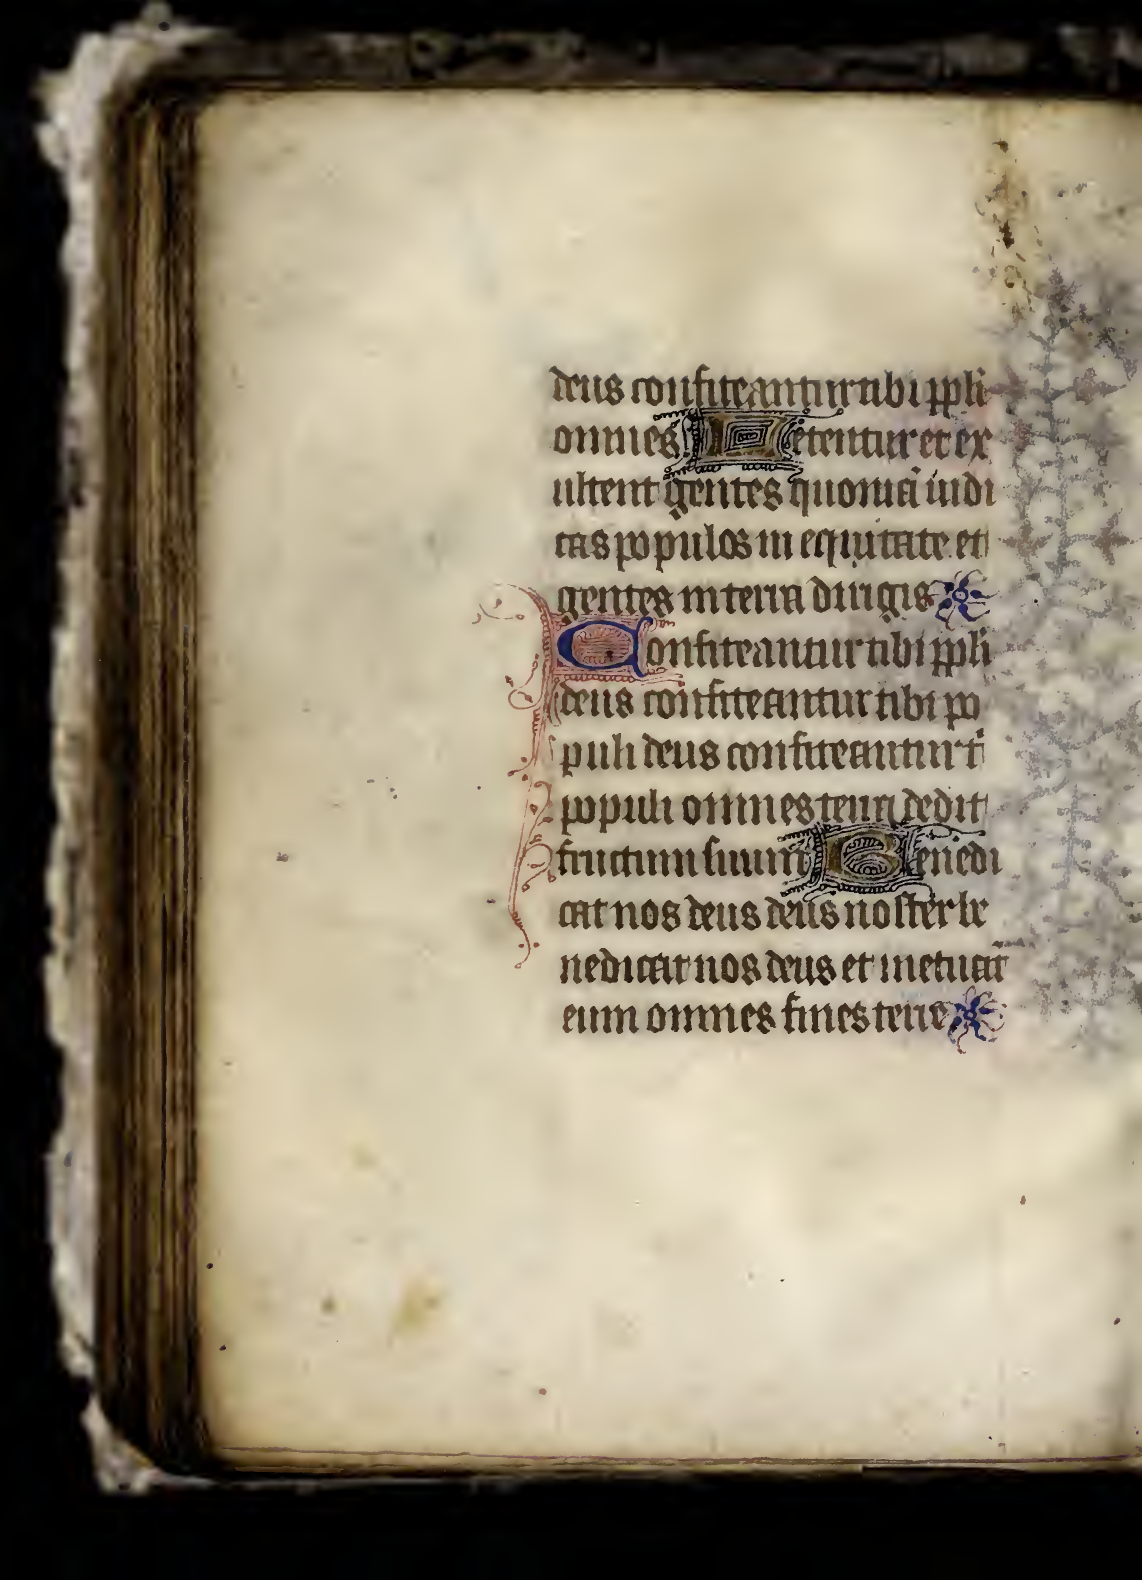 deus confiteantur tibi ppli
omnes Letentur et ex
ultent gentes quoniā iudi
cas populos in equitate et
gentes in terra dirigis
Confiteantur tibi ppli
deus confiteantur tibi po
puli deus confiteantur t
populi omnes terra dedit
fructum suum Benedi
cat nos deus deus noster be
nedicat nos deus et metuāt
eum omnes fines terre